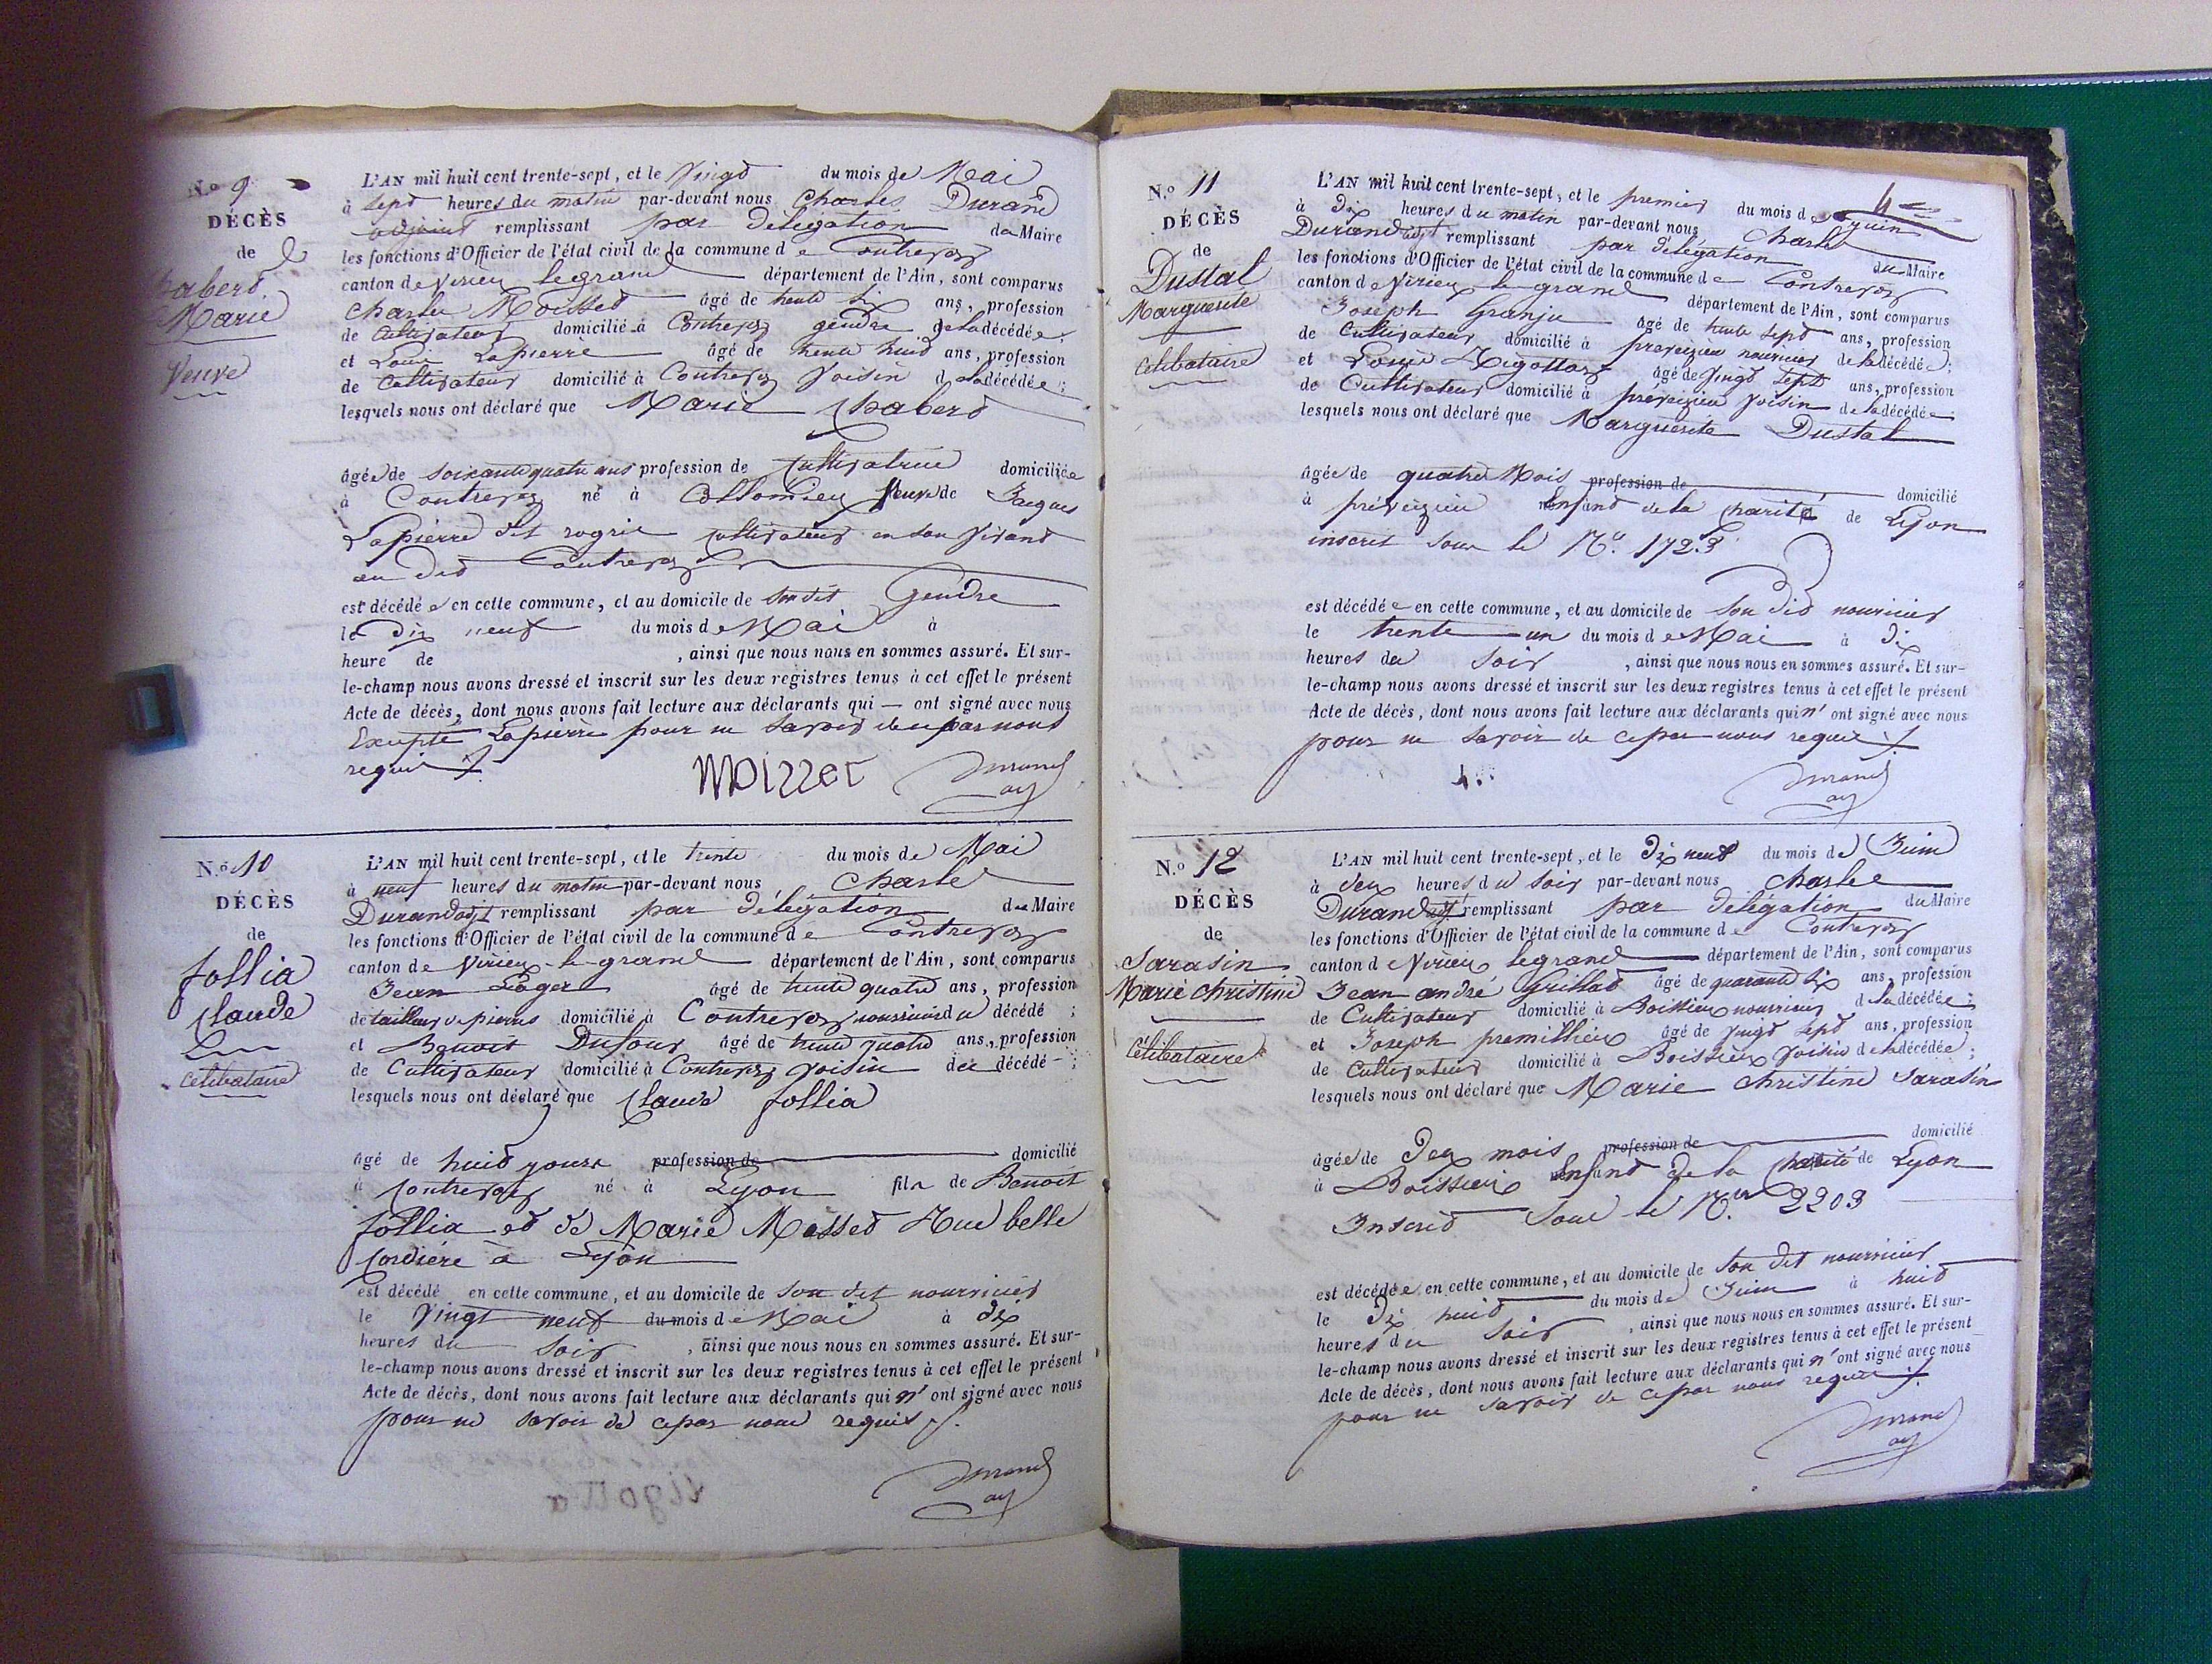 N.o 9.
DÉCÈS
de
habert
Marie
Veuve
L'AN mil huit cent trente-sept, et le Vingt du mois de Mai
à Sept heures du matin par-devant nous Charles Durand
adjoint remplissant par délégation du Maire
les fonctions d'Officier de l'état civil de la commune de Contrevoz
canton de Virieu legrand département de l'Ain, sont comparus
Charles Moisset âgé de trente six ans, profession
de Cultivateur domicilié à Contrevoz gendre de la décédée;
et Louis Lapierre âgé de trente huit ans, profession
de Cultivateur domicilié à Contrevoz Voisin de la décédée;
lesquels nous ont déclaré que Marie Chabert
âgée de soixante quatre ans profession de Cultivatrice domiciliée
à Contrevoz né à Collomieu Veuve de Jacques
Lapierre dit cultivateur en son Vivant
au dit Contrevoz
est décédée en cette commune, et au domicile de son dit Gendre
le Dix neuf du mois de Mai à
heure de , ainsi que nous nous en sommes assuré. Et sur-
le-champ nous avons dressé et inscrit sur les deux registres tenus à cet effet le présent
Acte de décès, dont nous avons fait lecture aux déclarants qui — ont signé avec nous
Excepté Lapierre pour ne Savoir de ce par nous
requis
Moisset Durand adj
N.o 10
DÉCÈS
de
follia
Claude
Célibataire
L'AN mil huit cent trente-sept, et le trente du mois de Mai
à neuf heures du matin par-devant nous Charle
Durand adjt remplissant par délégation du Maire
les fonctions d'Officier de l'état civil de la commune de Contrevoz
canton de Virieu-le-grand département de l'Ain, sont comparus
Jean Loger âgé de trente quatre ans, profession
de tailleur de pierres domicilié à Contrevoz nourricier du décédé ;
et Benoit Dufour âgé de trente quatre ans, profession
de Cultivateur domicilié à Contrevoz voisin du décédé ;
lesquels nous ont déclaré que Claude follia
âgé de huit yours profession de domicilié
à Contrevoz né à Lyon fils de Benoit
follia et de Marie Mosset Rue belle
Cordiere à Lyon
est décédé en cette commune, et au domicile de son dit nourricier
le Vingt neuf du mois de Mai à dix
heures du Soir , ainsi que nous nous en sommes assuré. Et sur-
le-champ nous avons dressé et inscrit sur les deux registres tenus à cet effet le présent
Acte de décès, dont nous avons fait lecture aux déclarants qui n' ont signé avec nous
pour ne savoir de ce par nous requis
Durand adj
N.o 11
DÉCÈS
de
Dustal
Marguerite
Célibataire
L'AN mil huit cent trente-sept, et le premier du mois de juin
à Dix heures du matin par-devant nous Charle
Durand adjt remplissant par délégation du Maire
les fonctions d'Officier de l'état civil de la commune de Contrevoz
canton de Virieu le grand département de l'Ain, sont comparus
Joseph Granju âgé de trente sept ans, profession
de Cultivateur domicilié à preveizieu nourricier de la décédée;
et Louis Rigottaz âgé de Vingt Sept ans, profession
de Cultivateur domicilié à preveizieu Voisin de la décédée;
lesquels nous ont déclaré que Marguerite Dustal
âgée de quatre Mois profession de domicilié
à préveizieu Enfant de la Charité de Lyon
inscrit sous le N.o 1723
est décédée en cette commune, et au domicile de son dit nourricier
le trente un du mois de Mai à Dix
heures du Soir , ainsi que nous nous en sommes assuré. Et sur-
le-champ nous avons dressé et inscrit sur les deux registres tenus à cet effet le présent
Acte de décès, dont nous avons fait lecture aux déclarants qui n' ont signé avec nous
pour ne Savoir de ce par nous requis
Durand adj
N.o 12
DÉCÈS
de
Sarasin
Marie Christine
Célibataire
L'AN mil huit cent trente-sept, et le Dix neuf du mois de Juin
à deux heures du Soir par-devant nous Charle
Durand adjt remplissant par délégation du Maire
les fonctions d'Officier de l'état civil de la commune de Contrevoz
canton de Virieu legrand département de l'Ain, sont comparus
Jean andré Grillat âgé de quarante six ans, profession
de Cultivateur domicilié à Boissieu nourricier de la décédée;
et Joseph premillieu âgé de Vingt Sept ans, profession
de Cultivateur domicilié à Boissieu Voisin de la décédée;
lesquels nous ont déclaré que Marie Christine Sarasin
âgée de deux mois profession de domicilié
à Boissieu Enfant de la Charité de Lyon
Inscrit Sous le N.o 2203
est décédée en cette commune, et au domicile de Son dit nourricier
le Dix huit du mois de Juin à huit
heures du Soir , ainsi que nous nous en sommes assuré. Et sur-
le-champ nous avons dressé et inscrit sur les deux registres tenus à cet effet le présent
Acte de décès, dont nous avons fait lecture aux déclarants qui n' ont signé avec nous
pour ne savoir de ce par nous requis
Durand adj